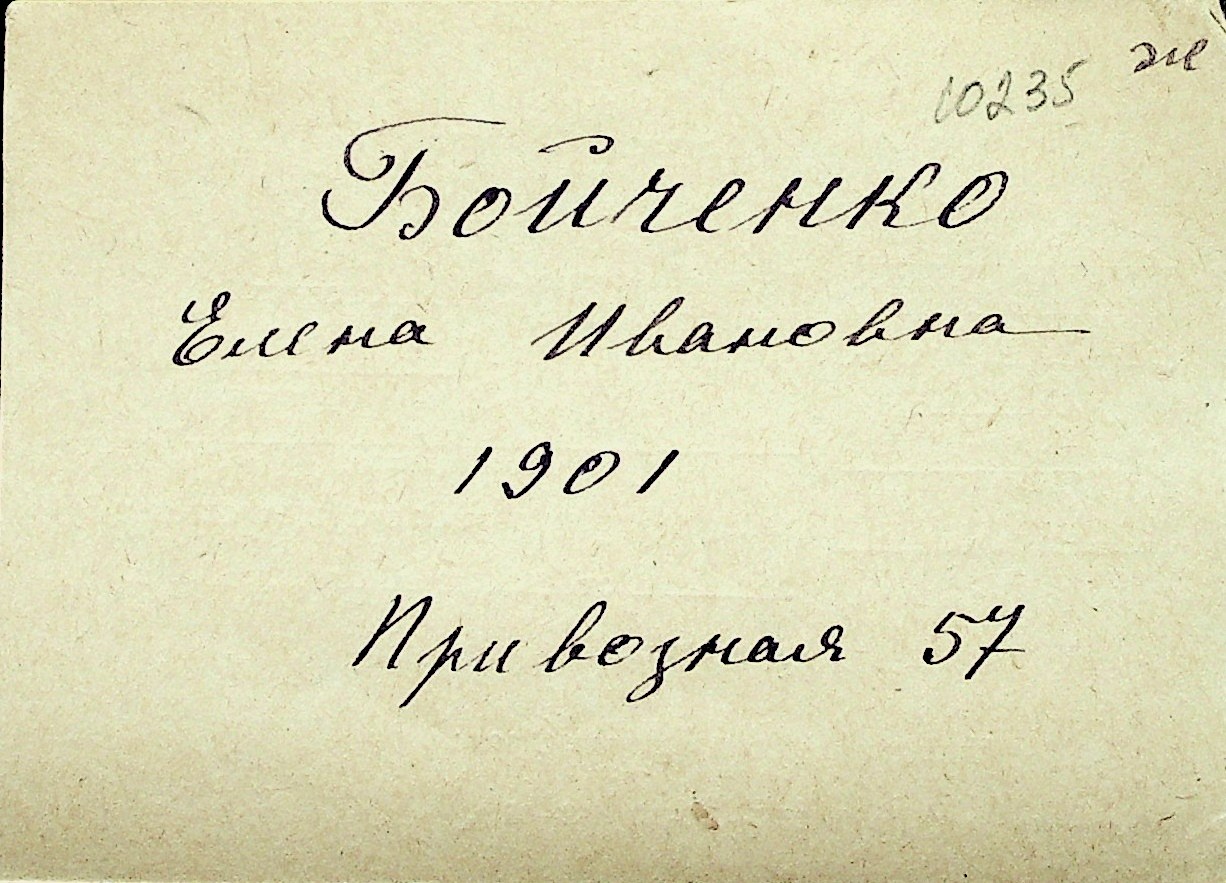 10235 ж
Бойченко
Елена Ивановна
1901
Привозная 57